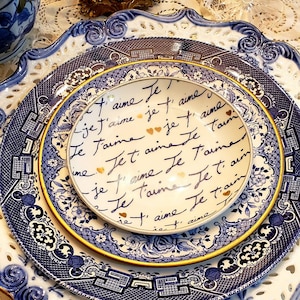 t'aime Je t
je t'aime je t'aime
Je t'aime je t'aime
aime Je t'aime Je t'aime
je t'aime Je t'aim
Je t'aime Je t'aime
je t'aime Je